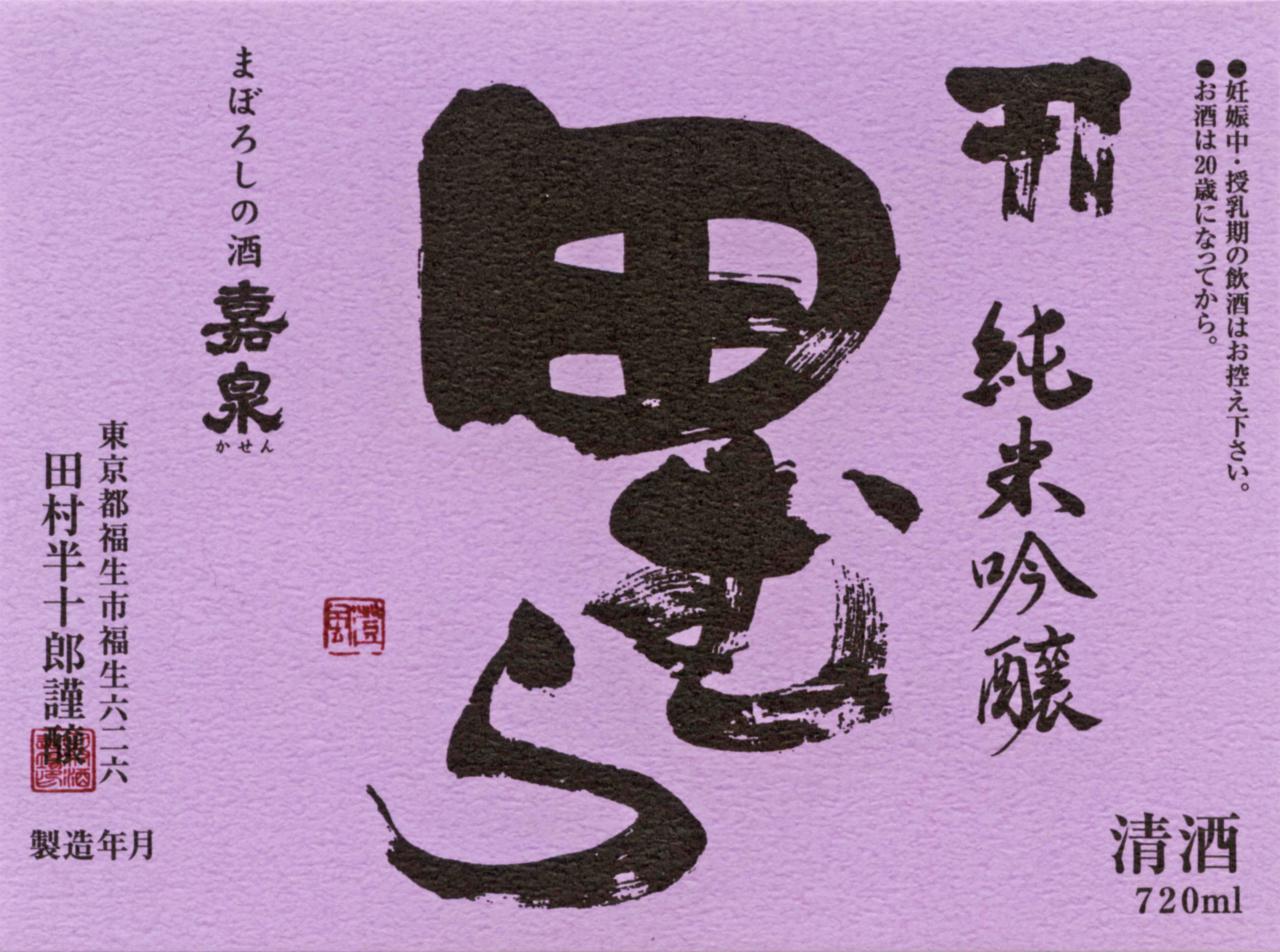 ●妊娠中・授乳期の飲酒はお控え下さい。
●お酒は20歳になってから。
純米吟醸
田むら
まぼろしの酒 嘉泉
かせん
東京都福生市福生六二六
田村半十郎謹醸
製造年月
清酒
720ml